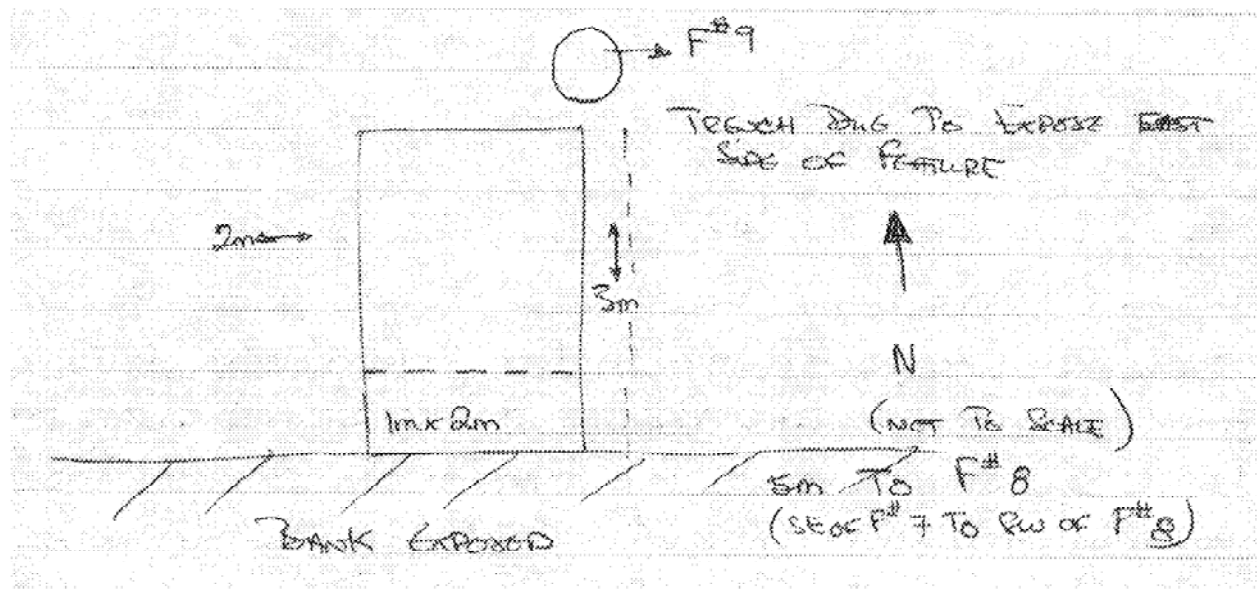 F#9
TRENCH DUG TO EXPOSE EAST
SIDE OF FEATURE
2m
3m
N
1m x 2m
(NOT TO SCALE)
5m TO F#8
(SE OF F#7 TO SW OF F#8)
BANK EXPOSED